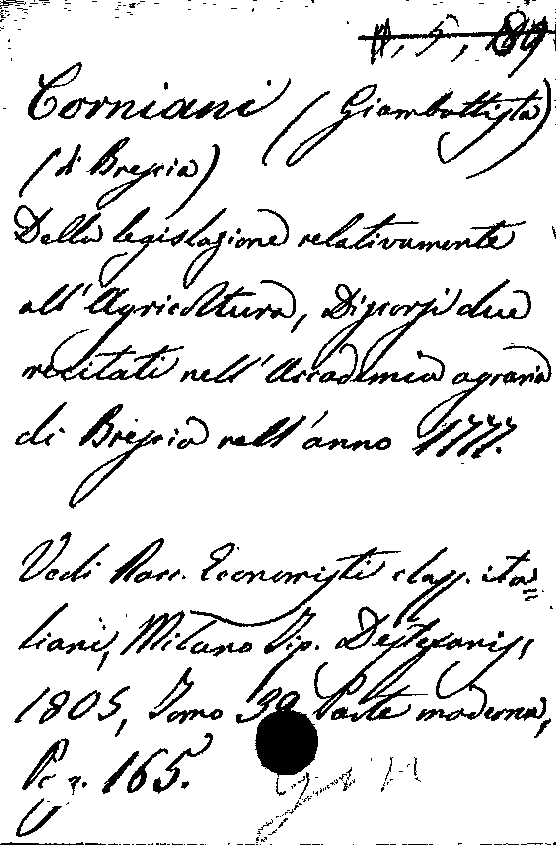 Corniani (Giambattista)
(di Brescia)
Della legislazione relativamente
all'Agricoltura, Discorsi due
recitati nell'Accademia agraria
di Brescia nell'anno 1777.
Vedi Racc. Economisti class. ita=
liani, Milano Tip. DeStefanis,
1805, Tomo 39 Parte moderna,
Pag. 165.